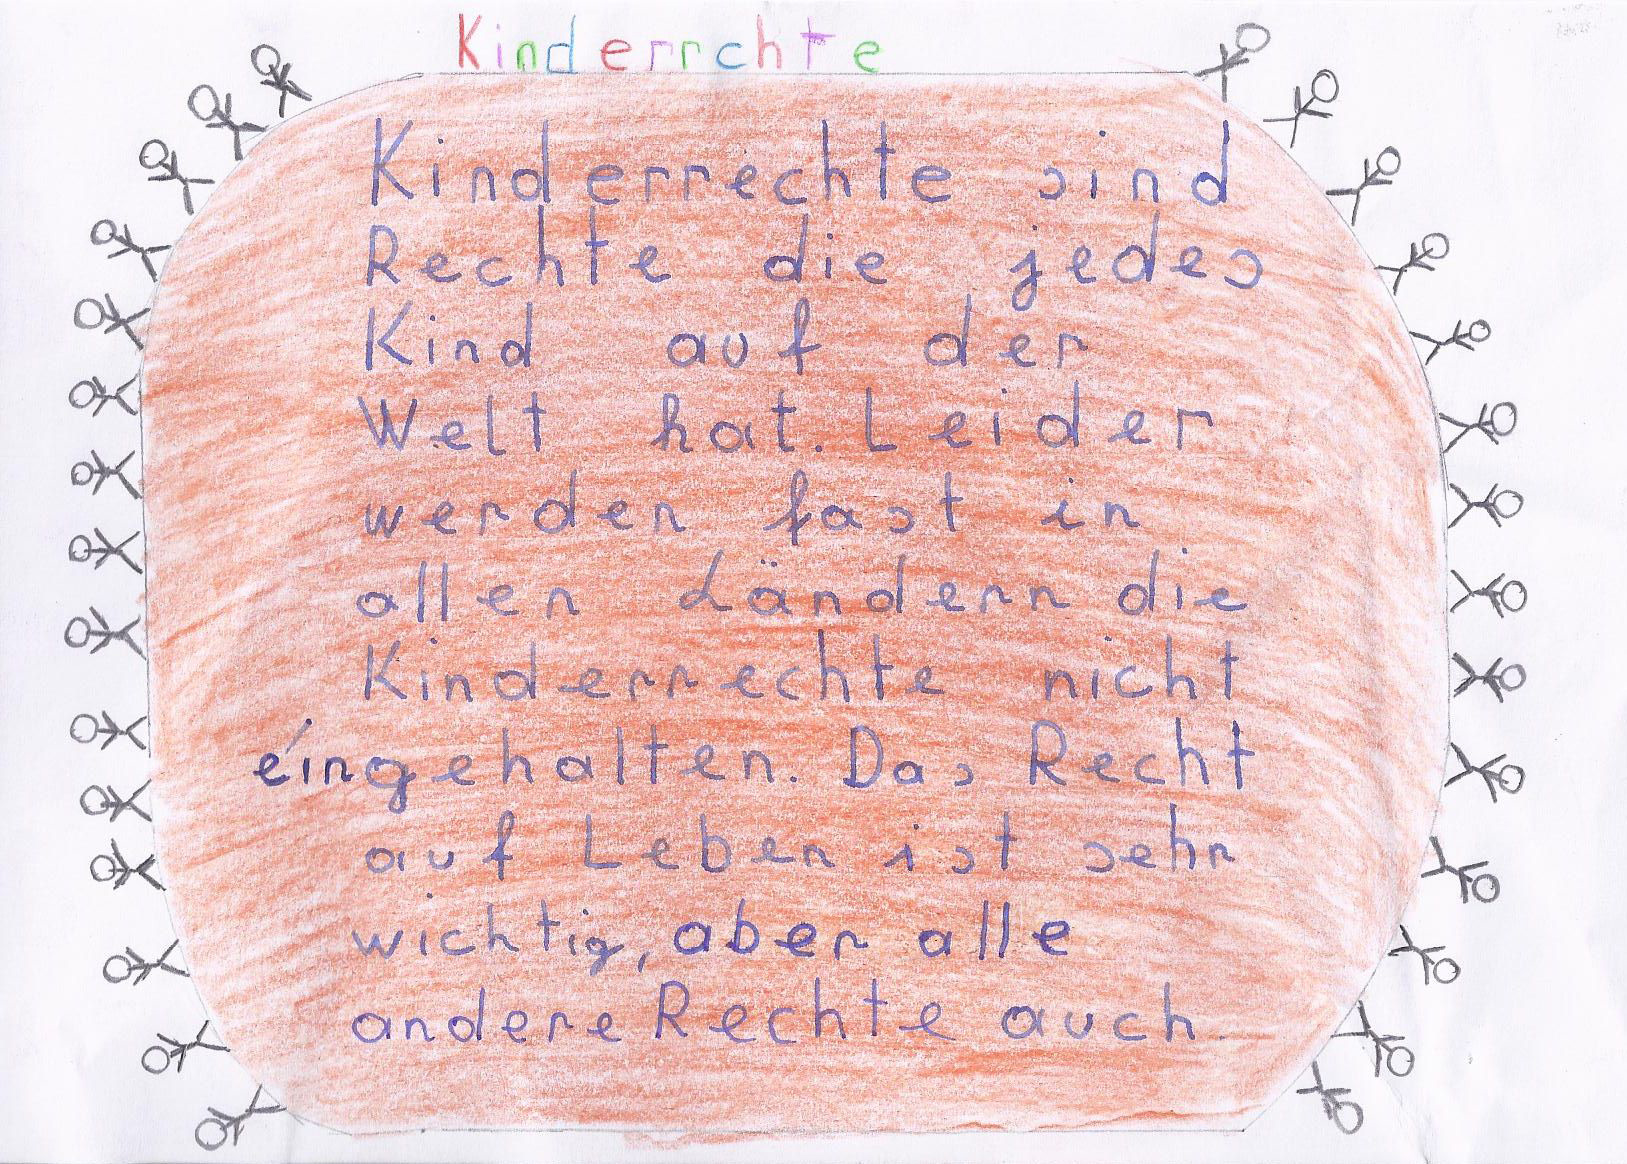 Kinderrchte
Kinderrechte sind
Rechte die jedes
Kind auf der
Welt hat. Leider
werden fast in
allen Ländern die
Kinderrechte nicht
eingehalten. Das Recht
auf Leben ist sehr
wichtig, aber alle
andere Rechte auch.